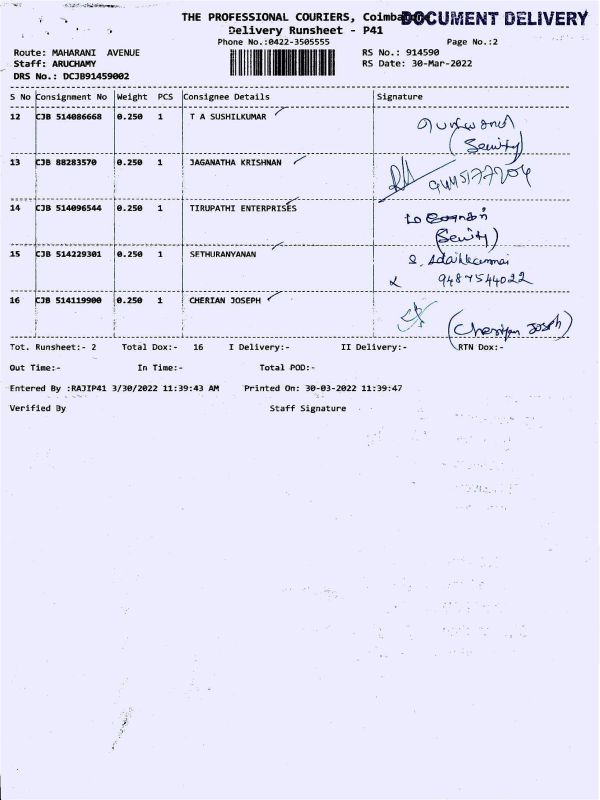 THE PROFESSIONAL COURIERS, Coimbatore
DOCUMENT DELIVERY
Delivery Runsheet - P41
Phone No.:0422-3505555 Page No.:2
Route: MAHARANI AVENUE RS No.: 914590
Staff: ARUCHAMY RS Date: 30-Mar-2022
DRS No.: DCJB91459002
S No Consignment No Weight PCS Consignee Details Signature
12 CJB 514086668 0.250 1 T A SUSHILKUMAR
(Security)
13 CJB 88283570 0.250 1 JAGANATHA KRISHNAN
9445177204
14 CJB 514096544 0.250 1 TIRUPATHI ENTERPRISES
(Security)
15 CJB 514229301 0.250 1 SETHURANYANAN
S. Adaikkammai
9487544022
16 CJB 514119900 0.250 1 CHERIAN JOSEPH
(Cheriyan Joseph)
Tot. Runsheet:- 2 Total Dox:- 16 I Delivery:- II Delivery:- RTN Dox:-
Out Time:- In Time:- Total POD:-
Entered By :RAJIP41 3/30/2022 11:39:43 AM Printed On: 30-03-2022 11:39:47
Verified By Staff Signature